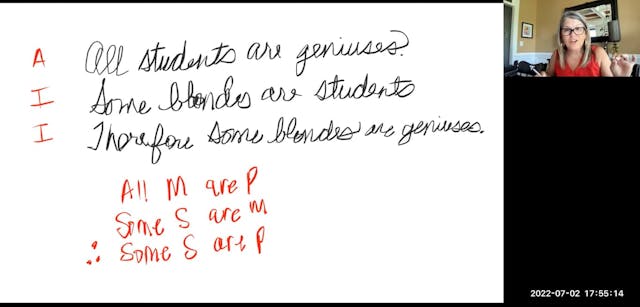 A All students are geniuses.
I Some blondes are students
I Therefore some blondes are geniuses.
All M are P
Some S are M
∴ Some S are P
2022-07-02 17:55:14